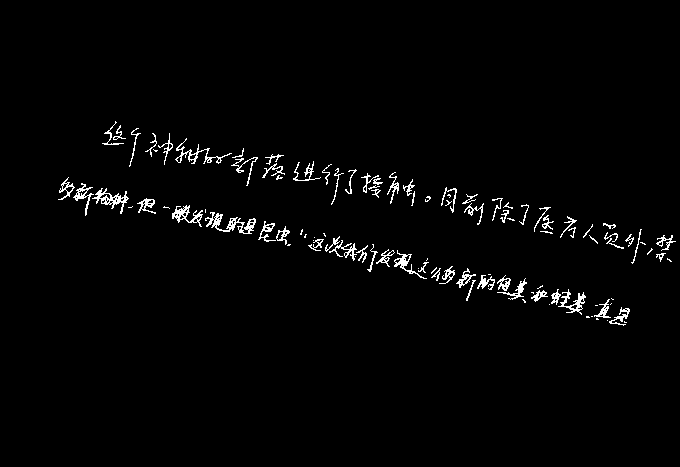 这个神秘的部落进行了接触。目前除了医疗人员外,禁
多新物种,但一般发现的是昆虫。“这次我们发现这么多新的鱼类和蛙类,真是